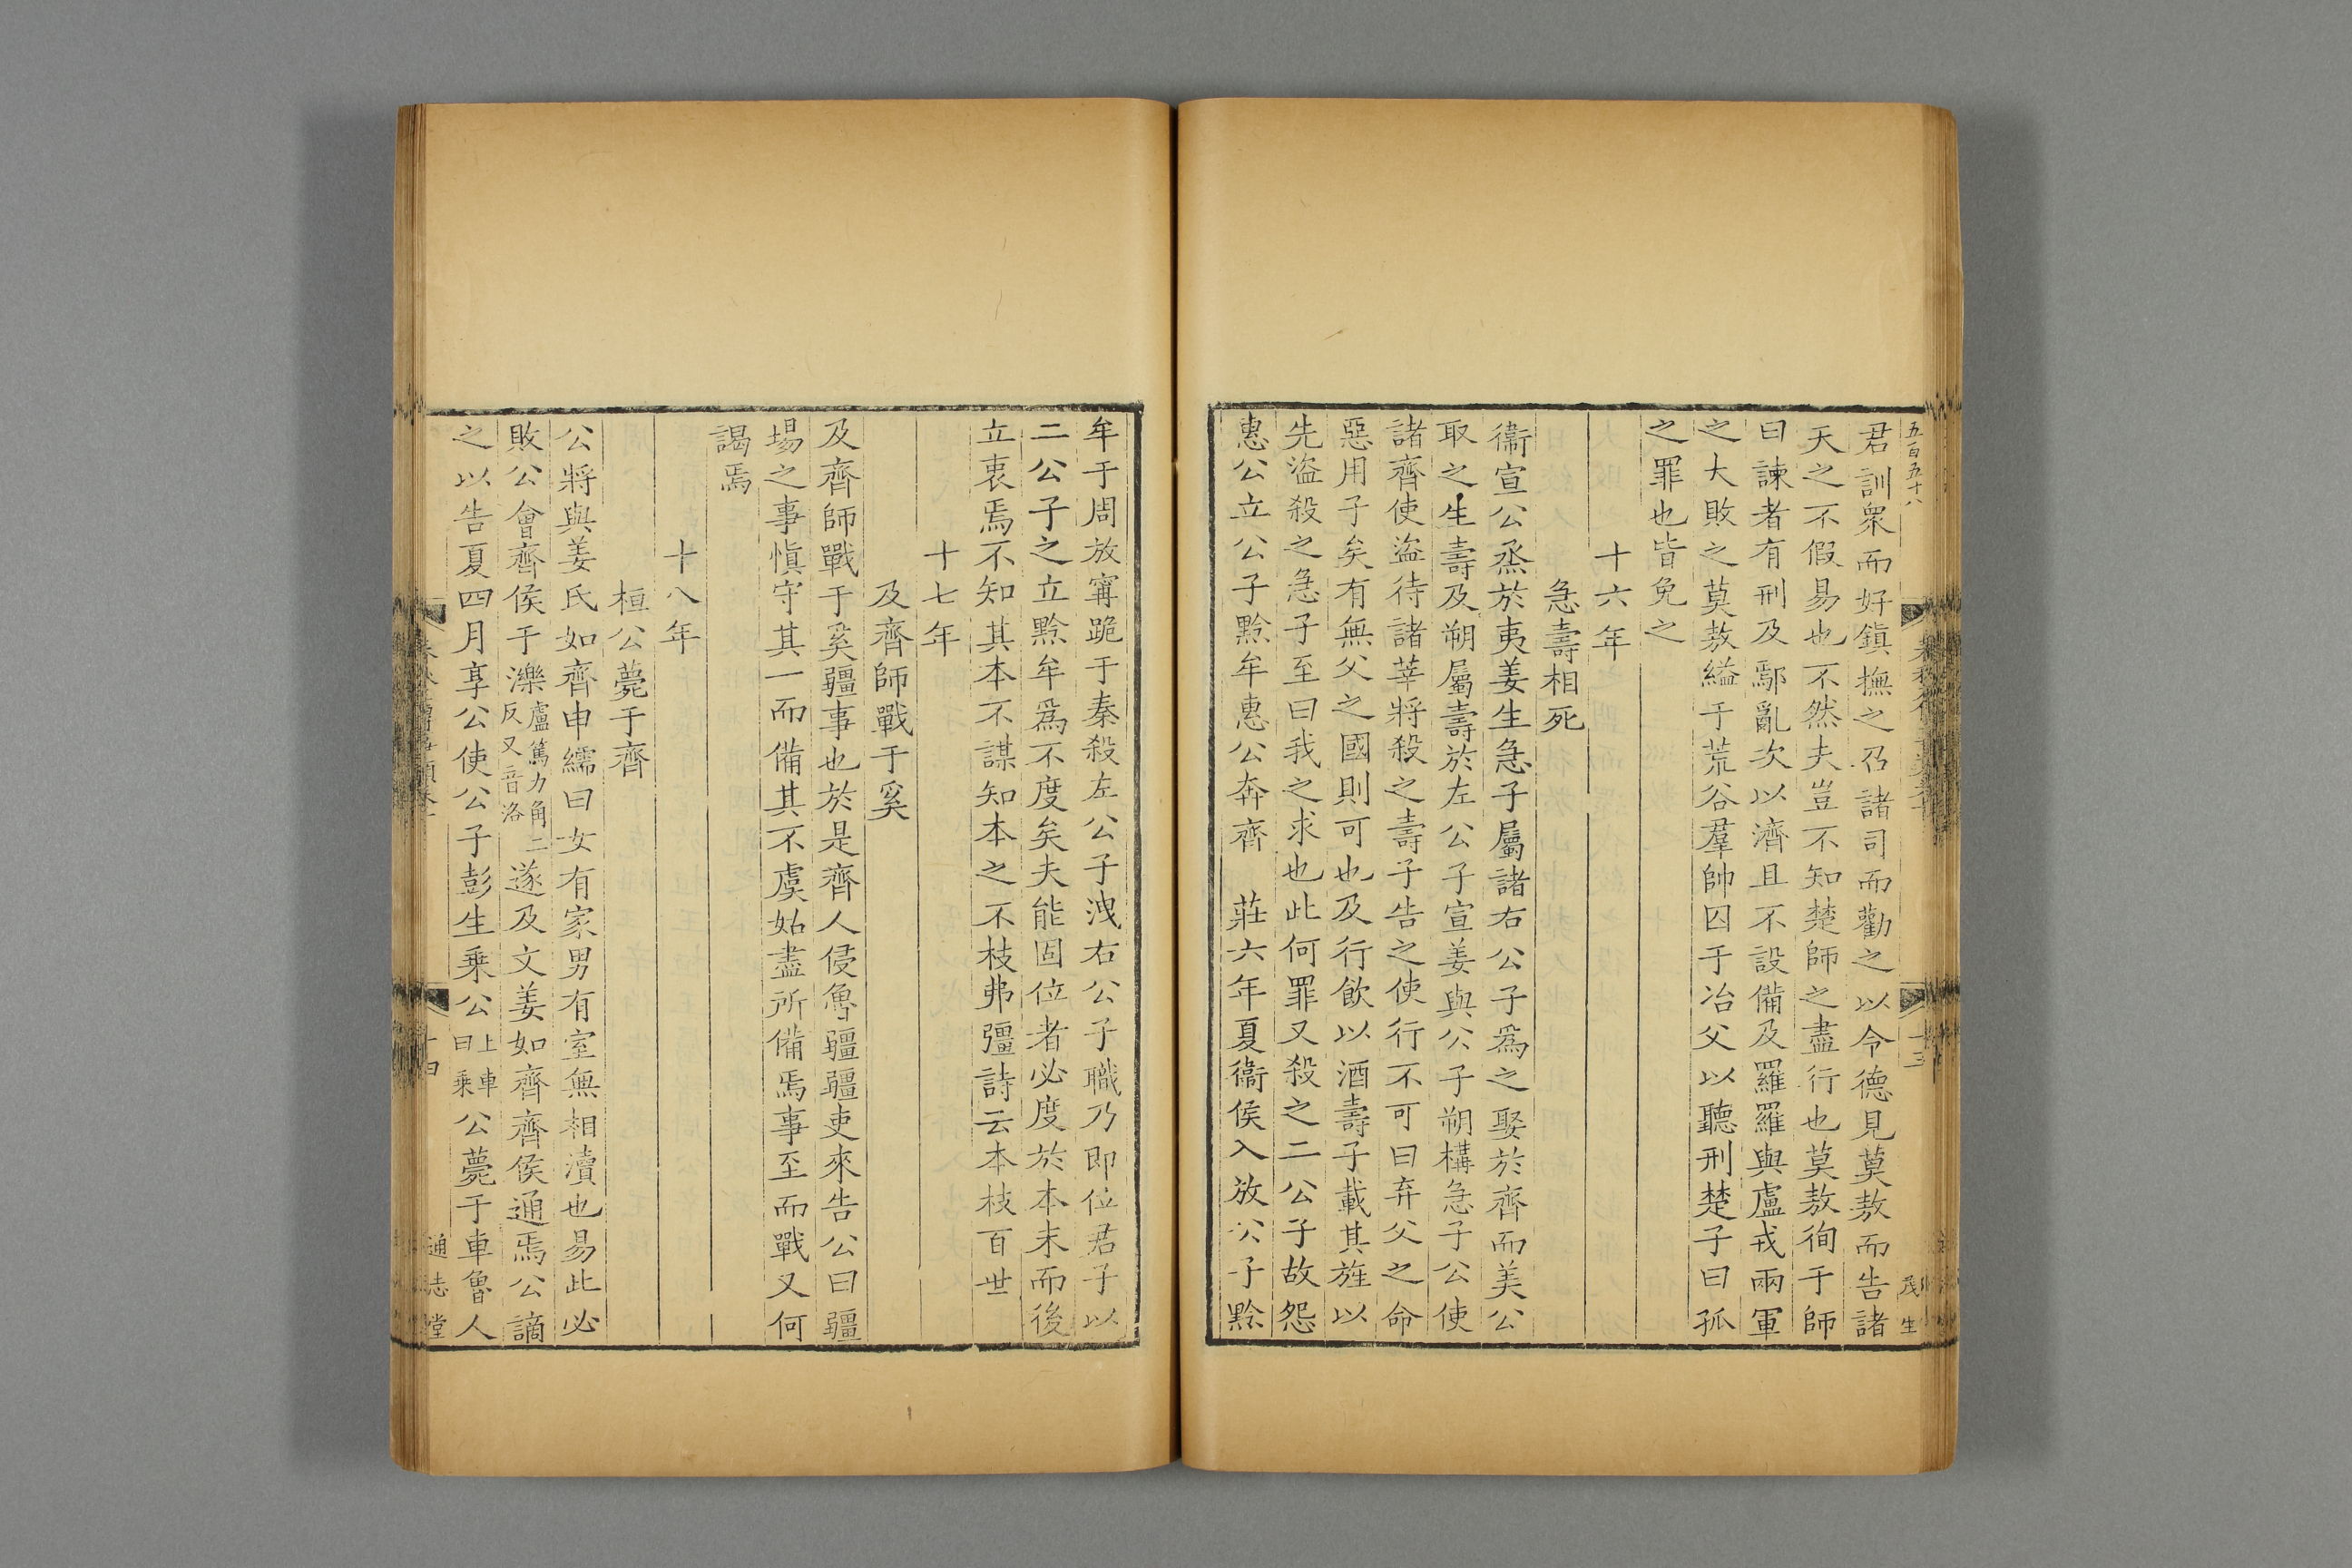 五百五十八
茂生
十三
君訓衆而好鎮撫之召諸司而勸之以令德見莫敖而告諸
天之不假易也不然夫豈不知楚師之盡行也莫敖徇于師
曰諫者有刑及鄢亂次以濟且不設備及羅羅與盧戎兩軍
之大敗之莫敖縊于荒谷羣帥囚于冶父以聽刑楚子曰孤
之罪也皆免之
十六年
急壽相死
衞宣公烝於夷姜生急子屬諸右公子爲之娶於齊而美公
取之生壽及朔屬壽於左公子宣姜與公子朔構急子公使
諸齊使盜待諸莘將殺之壽子告之使行不可曰弃父之命
惡用子矣有無父之國則可也及行飲以酒壽子載其旌以
先盜殺之急子至曰我之求也此何罪又殺之二公子故怨
惠公立公子黔牟惠公奔齊 莊六年夏衞侯入放公子黔
牟于周放甯跪于秦殺左公子洩右公子職乃即位君子以
二公子之立黔牟爲不度矣夫能固位者必度於本末而後
立衷焉不知其本不謀知本之不枝弗彊詩云本枝百世
十七年
及齊師戰于奚
及齊師戰于奚疆事也於是齊人侵魯疆疆吏來告公曰疆
場之事慎守其一而備其不虞姑盡所備焉事至而戰又何
謁焉
十八年
桓公薨于齊
公將與姜氏如齊申繻曰女有家男有室無相瀆也易此必
敗公會齊侯于濼盧篤力角二反又音洛遂及文姜如齊齊侯通焉公謫
之以告夏四月享公使公子彭生乘公上車曰乘公薨于車魯人
十四
通志堂